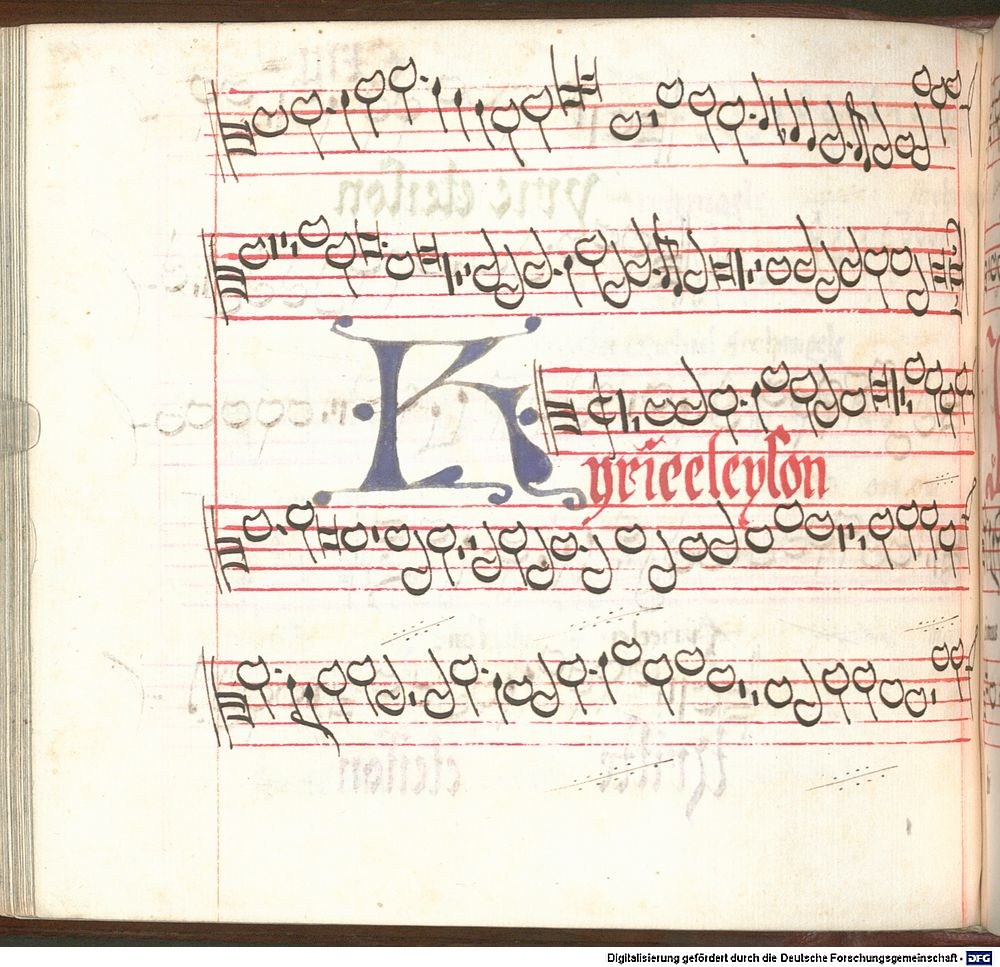 Kyrieeleyson
Digitalisierung gefördert durch die Deutsche Forschungsgemeinschaft - DFG